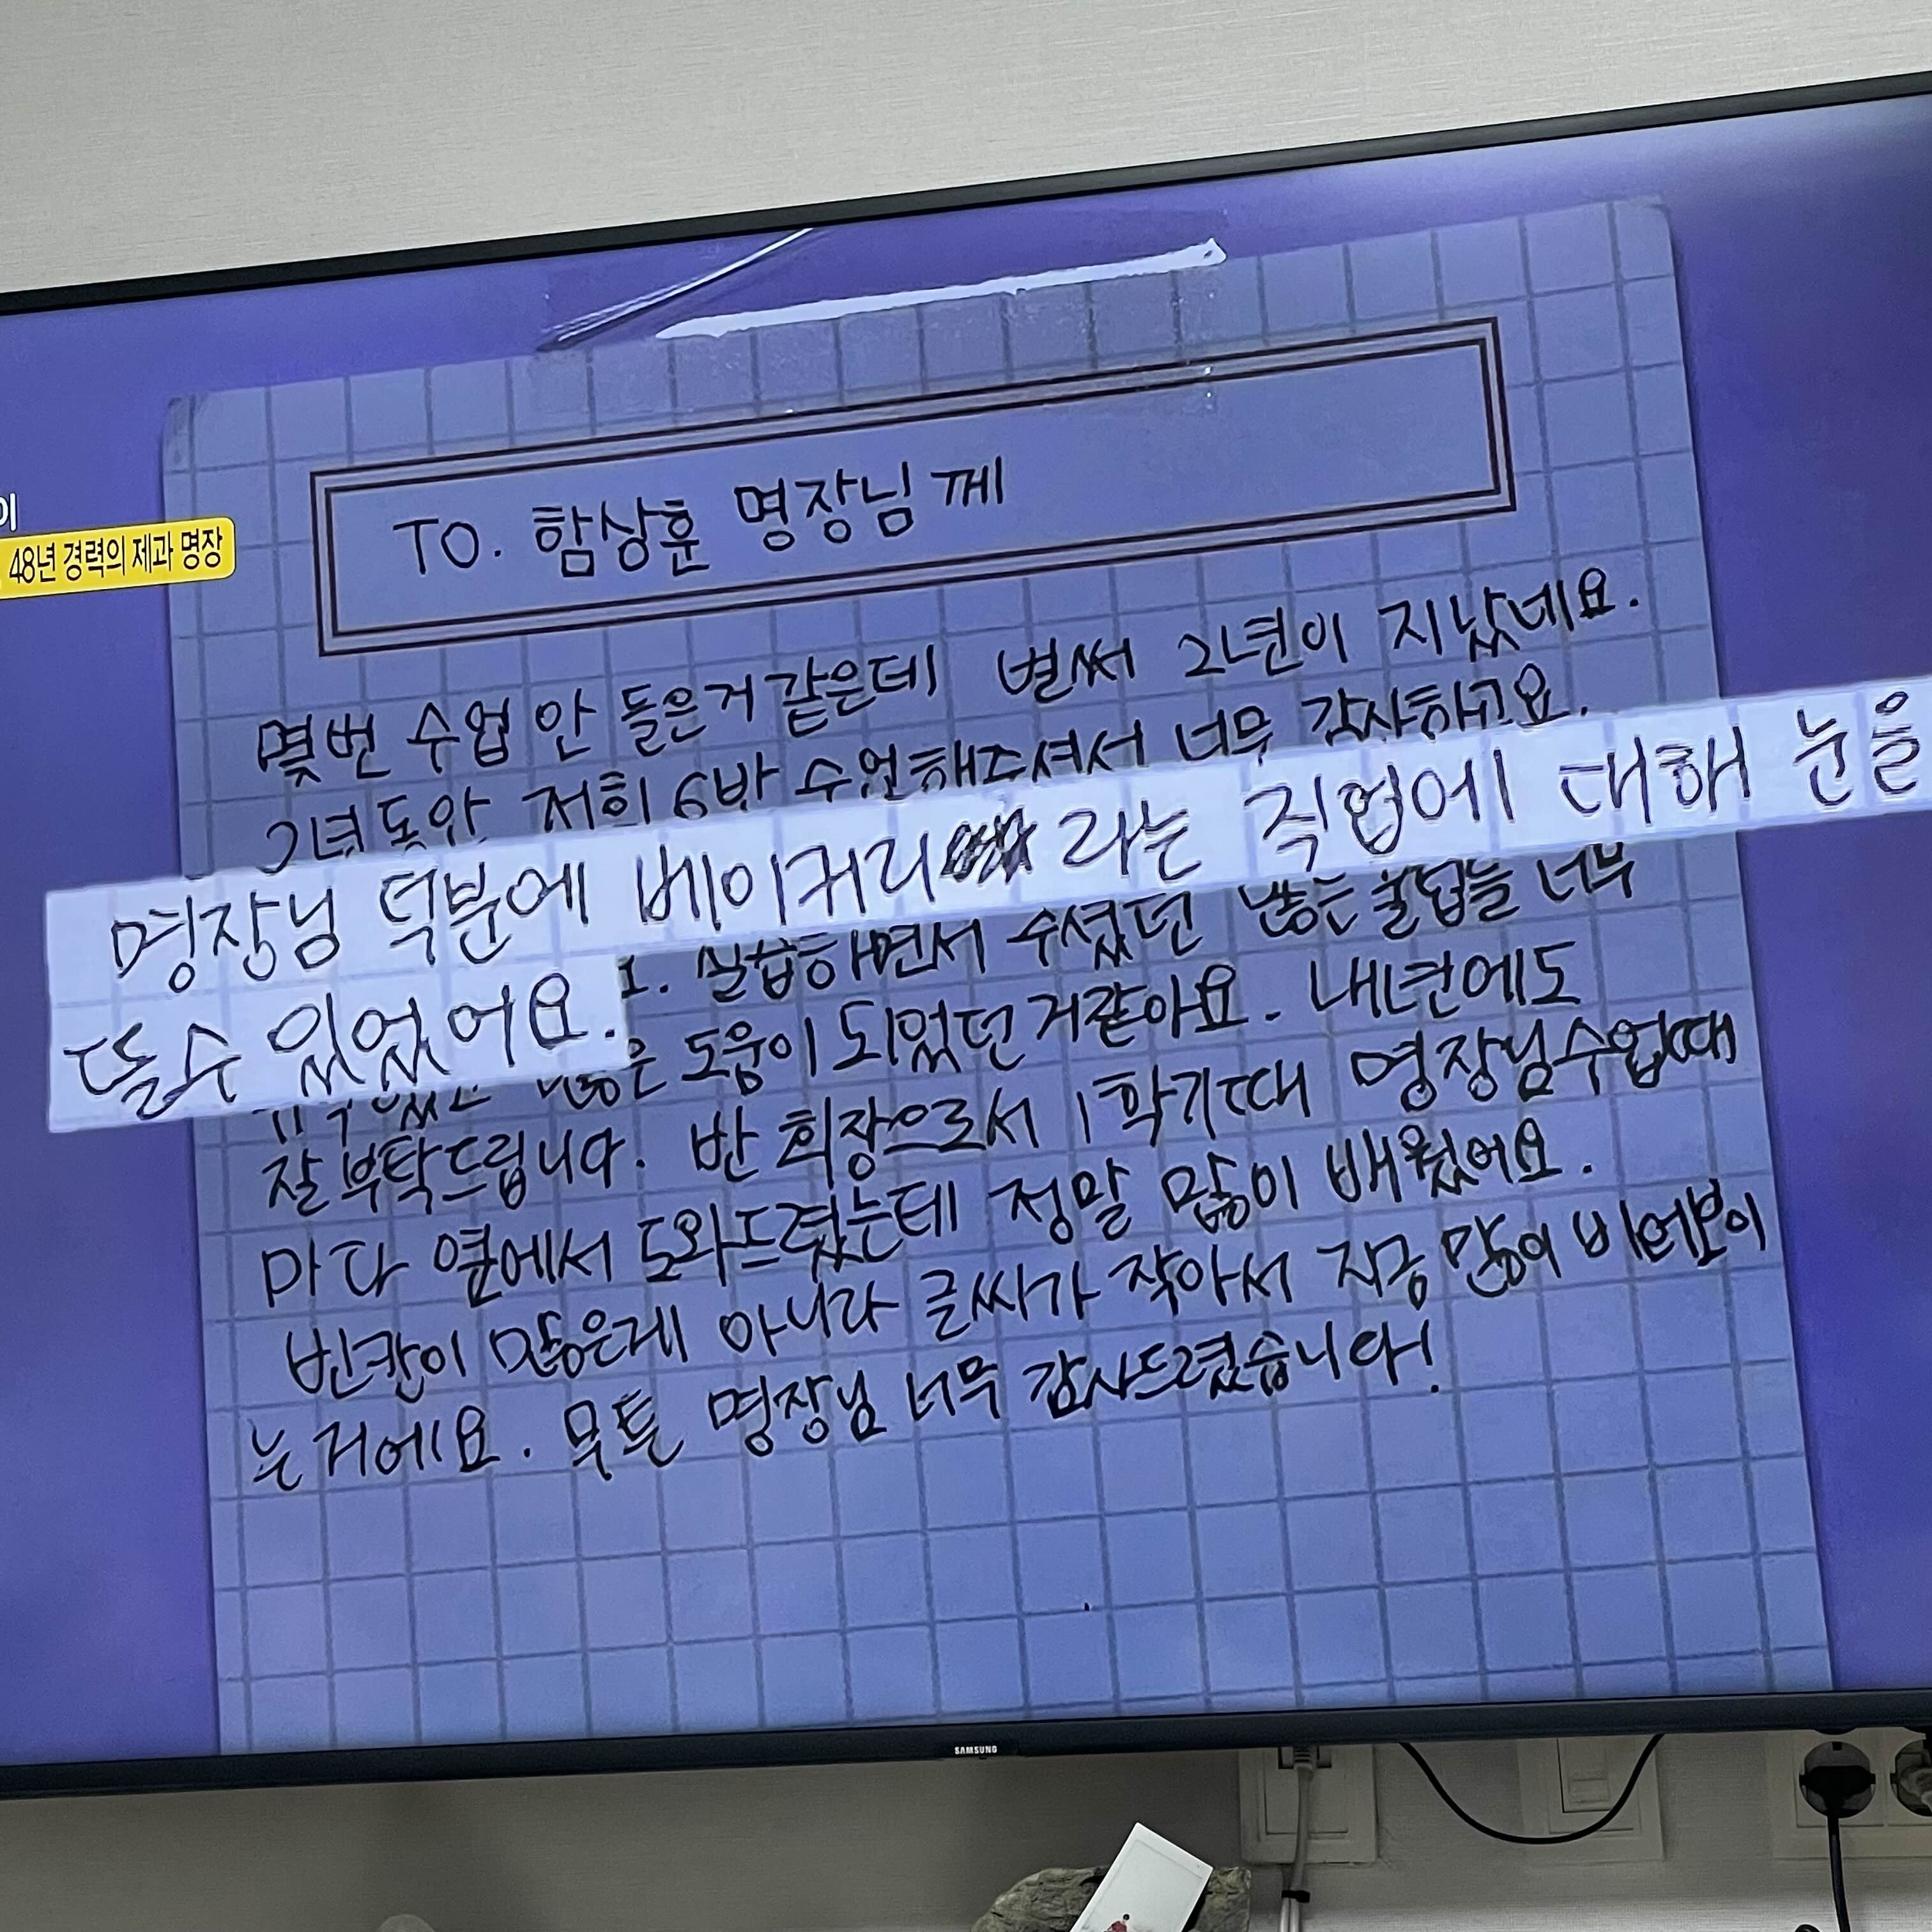 이
48년 경력의 제과 명장
TO. 함상훈 명장님께
몇번 수업 안 들은거 같은데 벌써 2년이 지났네요.
2년동안 저희 6반 수업해주셔서 너무 감사하고요.
명장님 덕분에 베이커리 라는 직업에 대해 눈을
뜰수 있었어요.
실습하면서 주셨던 많은 꿀팁들 너무
많은 도움이 되었던거같아요. 내년에도
잘 부탁드립니다. 반 회장으로서 1학기때 명장님수업때
마다 옆에서 도와드렸는데 정말 많이 배웠어요.
빈칸이 많은게 아니라 글씨가 작아서 지금 많이 비어보이
는거에요. 무튼 명장님 너무 감사드렸습니다!
SAMSUNG